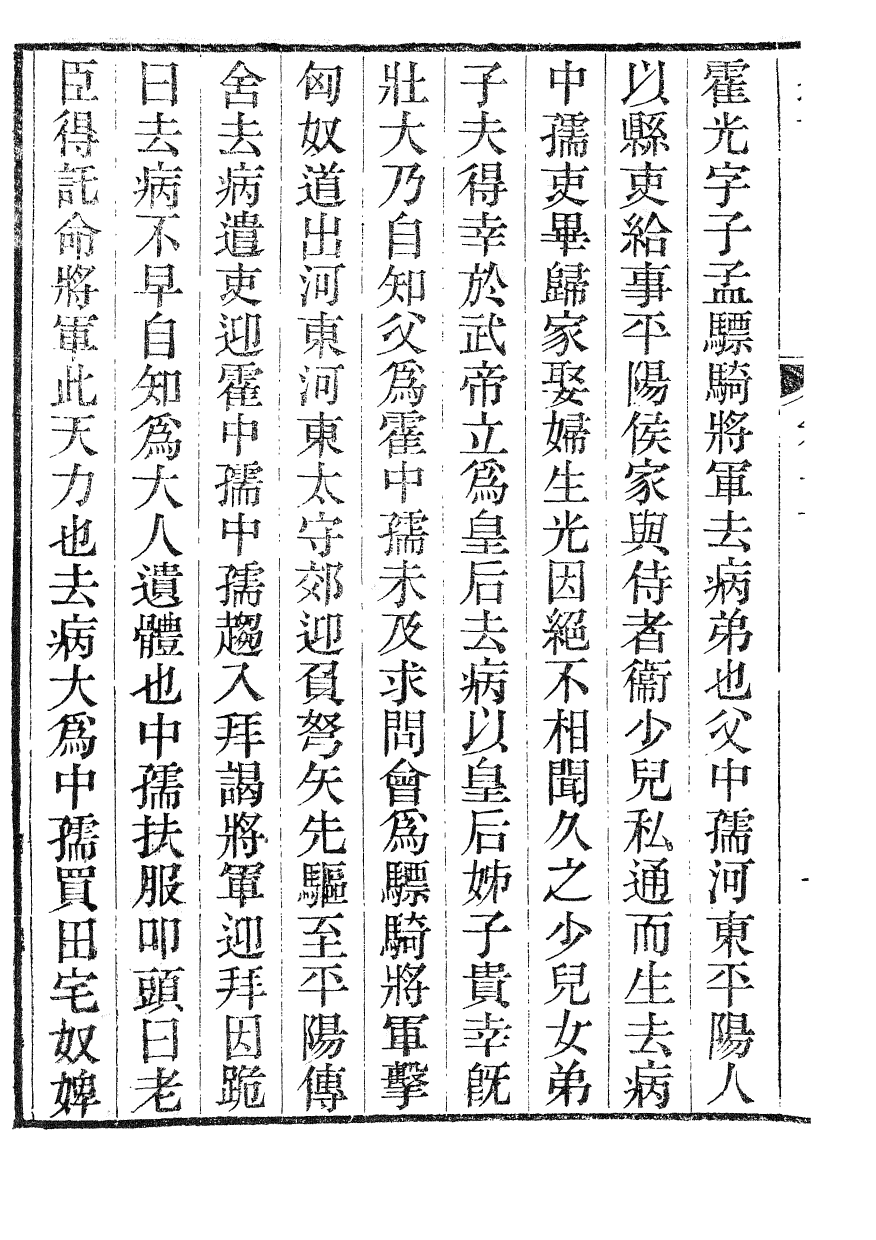 霍光字子孟驃騎將軍去病弟也父中孺河東平陽人
以縣吏給事平陽侯家與侍者衞少兒私通而生去病
中孺吏畢歸家娶婦生光因絕不相聞久之少兒女弟
子夫得幸於武帝立爲皇后去病以皇后姊子貴幸旣
壯大乃自知父爲霍中孺未及求問會爲驃騎將軍擊
匈奴道出河東河東太守郊迎負弩矢先驅至平陽傳
舍去病遣吏迎霍中孺中孺趨入拜謁將軍迎拜因跪
曰去病不早自知爲大人遺體也中孺扶服叩頭曰老
臣得託命將軍此天力也去病大爲中孺買田宅奴婢